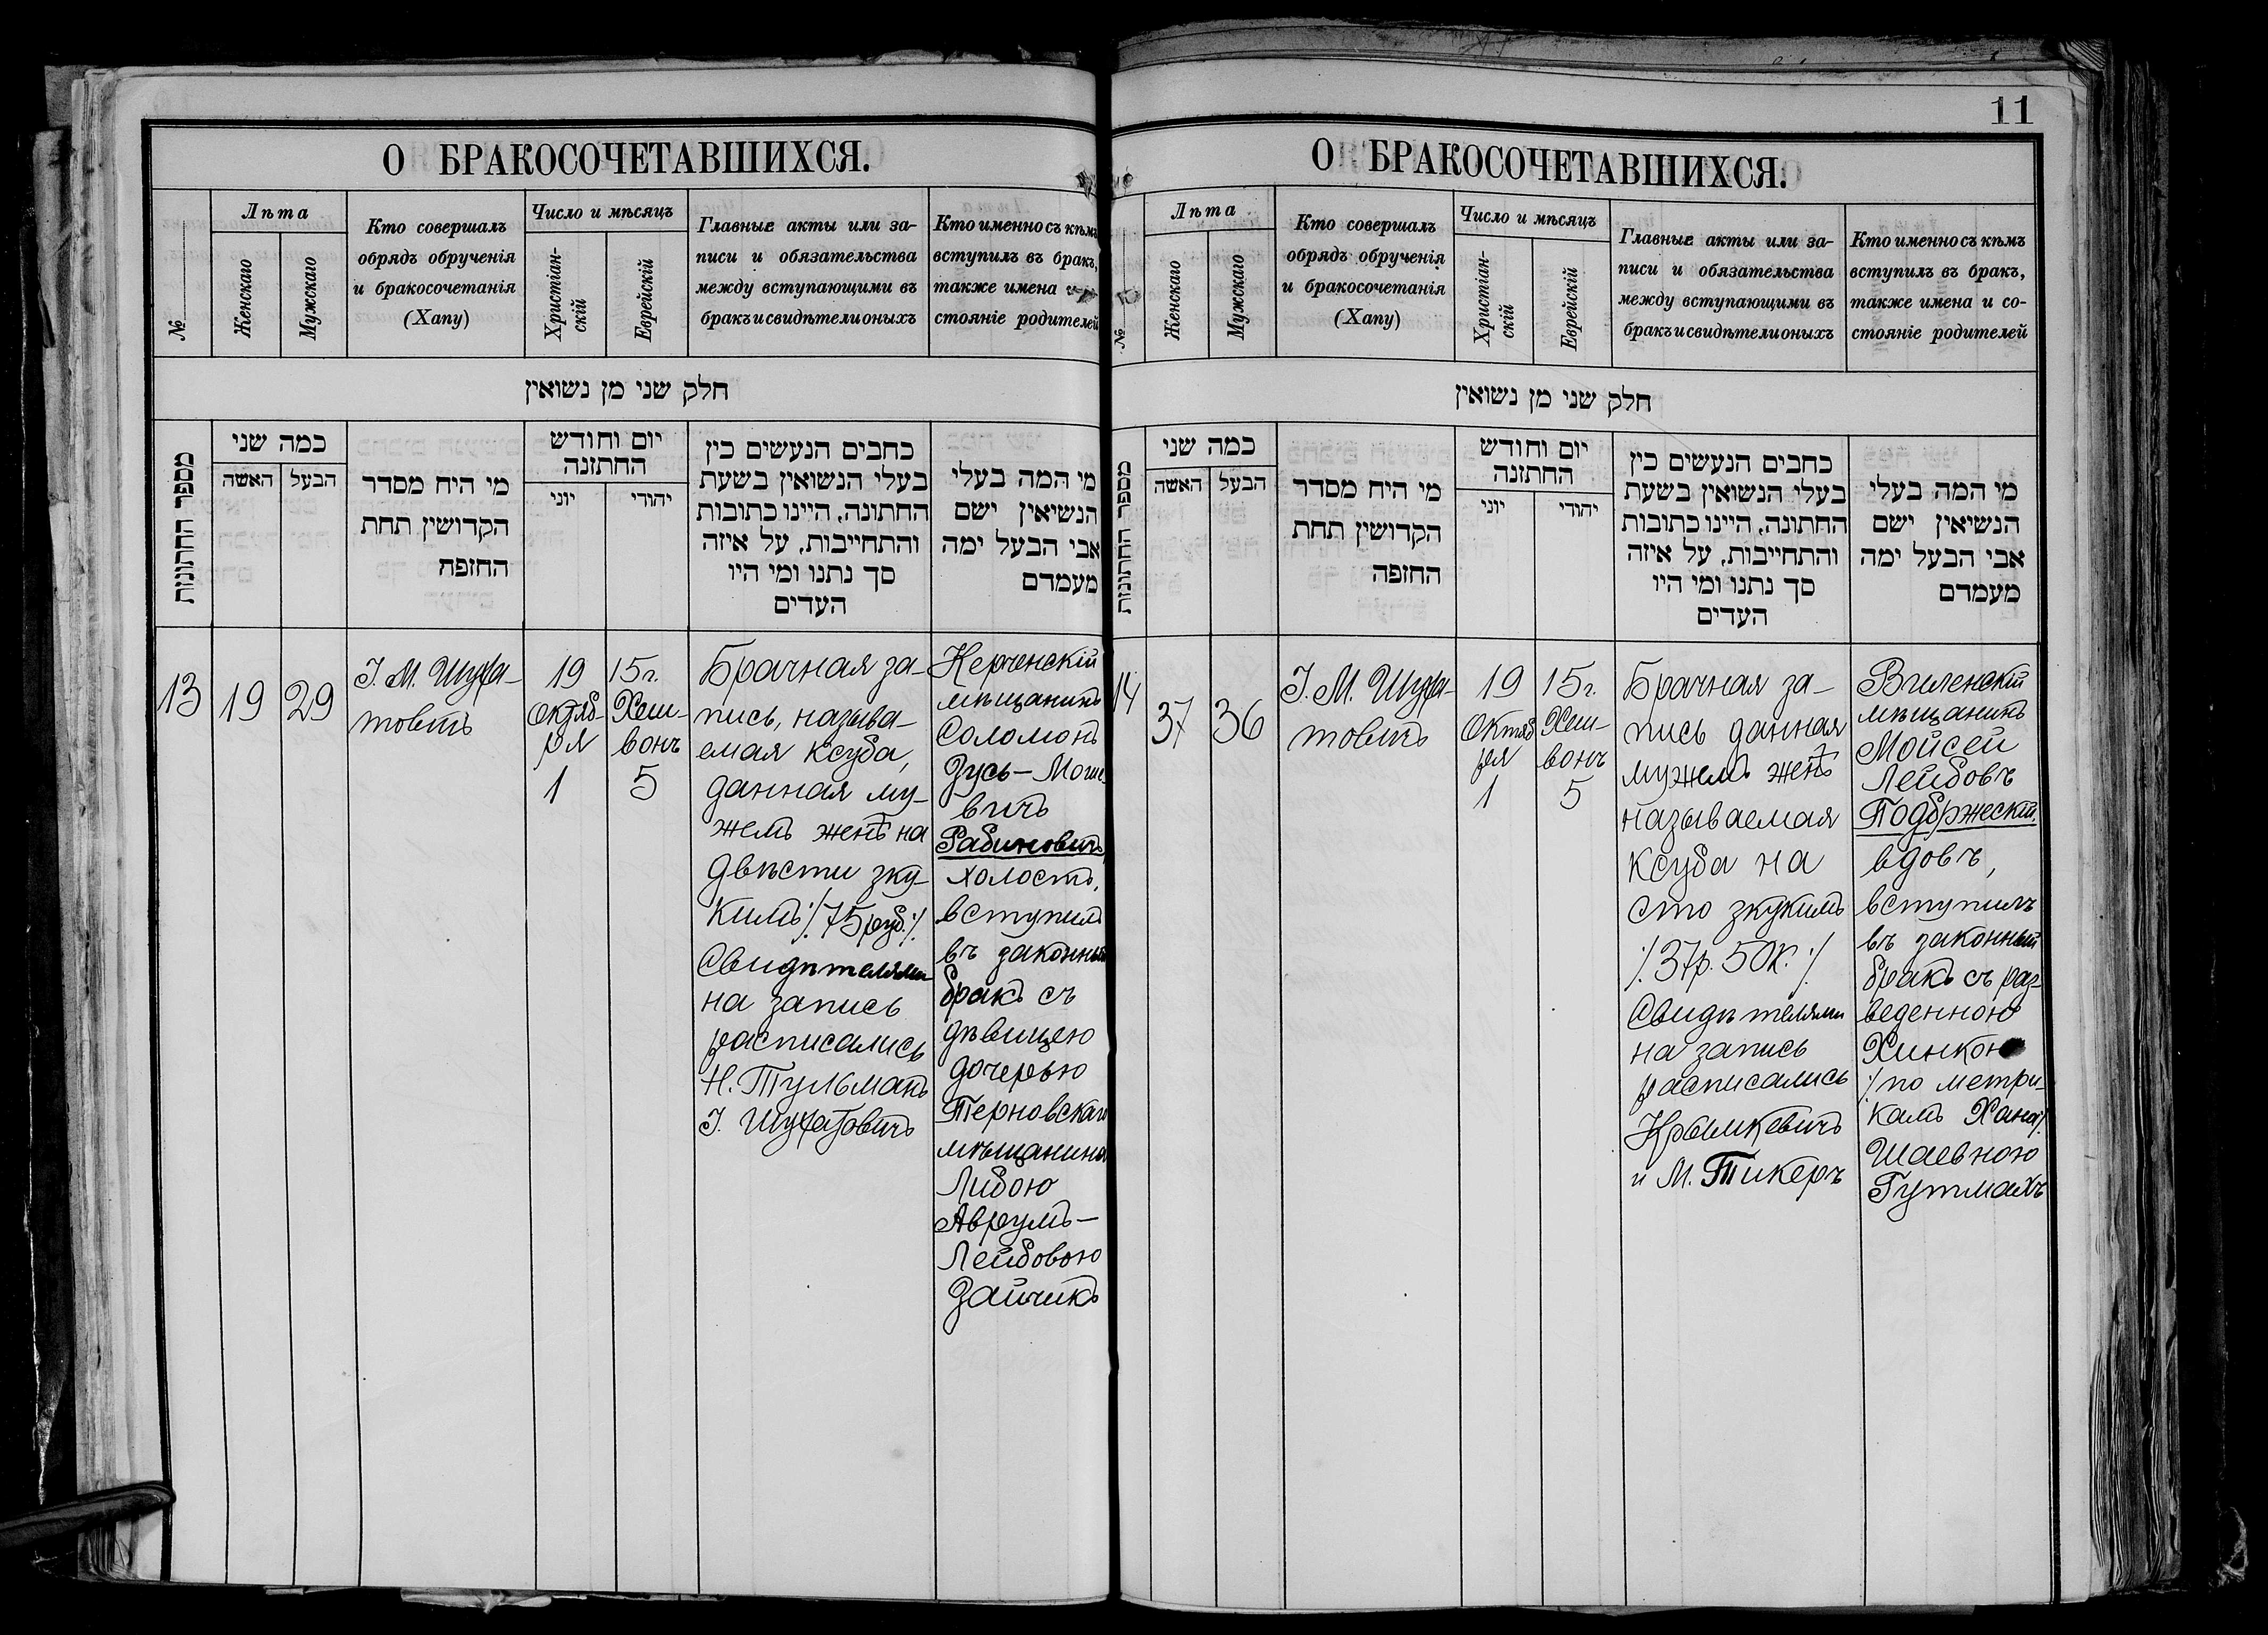 О БРАКОСОЧЕТАВШИХСЯ.
№
Лѣта
Женскаго
Мужскаго
Кто совершалъ
обрядъ обрученія
и бракосочетанія
(Хапу)
Число и мѣсяцъ
Христіан-
скій
Еврейскій
Главные акты или за-
писи и обязательства
между вступающими въ
бракъ и свидѣтели оныхъ
Кто именно съ кѣмъ
вступилъ въ бракъ,
также имена
стояніе родителей
חלק שני מן נשואין
מספר החתונות
כמה שני
האשה
הבעל
מי היח מסדר
הקדושין תחת
החזפח
יום וחודש
החתזנה
יוני
יהודי
כחבים הנעשים כין
בעלי הנשואין בשעת
החתונה, היינו כתובות
והתחייבות, על איזה
סך נתנו ומי היו
העדים
מי המה בעלי
הנשיאין ישם
אבי הבעל ימה
מעמדם
13
19
29
І. М. Шуфа-
товичъ
19
октяб-
ря
1
15 г.
Хеш-
вонъ
5
Брачная за-
пись, называ-
емая ксуба,
данная му-
жемъ женѣ на
двѣсти зку-
кимъ ⁒ 75 руб. ⁒
Свидѣтелями
на запись
расписались
Н. Тульманъ
І. Шуфатовичъ
Керченскій
мѣщанинъ
Соломонъ
Зусь-Моше-
вичъ
Рабиновичъ
холостъ,
вступилъ
въ законный
бракъ съ
дѣвицею
дочерью
Терновскаго
мѣщанина
Либою
Аврумъ-
Лейбовою
Зайчикъ
11
О БРАКОСОЧЕТАВШИХСЯ.
№
Лѣта
Женскаго
Мужскаго
Кто совершалъ
обрядъ обрученія
и бракосочетанія
(Хапу)
Число и мѣсяцъ
Христіан-
скій
Еврейскій
Главные акты или за-
писи и обязательства
между вступающими въ
бракъ и свидѣтели оныхъ
Кто именно съ кѣмъ
вступилъ въ бракъ,
также имена и со-
стояніе родителей
חלק שני מן נשואין
מספר החתונות
כמה שני
האשה
הבעל
מי היח מסדר
הקדושין תחת
החזפה
יום וחודש
החתזנה
יוני
יהודי
כחבים הנעשים כין
בעלי הנשואין בשעת
החתונה, היינו כתובות
והתחייבות, על איזה
סך נתנו ומי היו
העדים
מי המה בעלי
הנשיאין ישם
אבי הבעל ימה
מעמדם
14
37
36
І. М. Шуфа-
товичъ
19
Октяб
ря
1
15 г.
Хеш-
вонъ
5
Брачная за-
пись данная
мужемъ женѣ
называемая
Ксуба на
сто зкукимъ
⁒ 37р. 50к. ⁒
Свидѣтелями
на запись
расписались
Крымкевичъ
и М. Тикеръ
Виленскій
мѣщанинъ
Мойсей
Лейбовъ
Подбржескій,
вдовъ,
вступилъ
въ законный
бракъ съ раз-
веденною
Хинкою
⁒ по метри-
камъ Хана ⁒
Шаевною
Гутмахъ